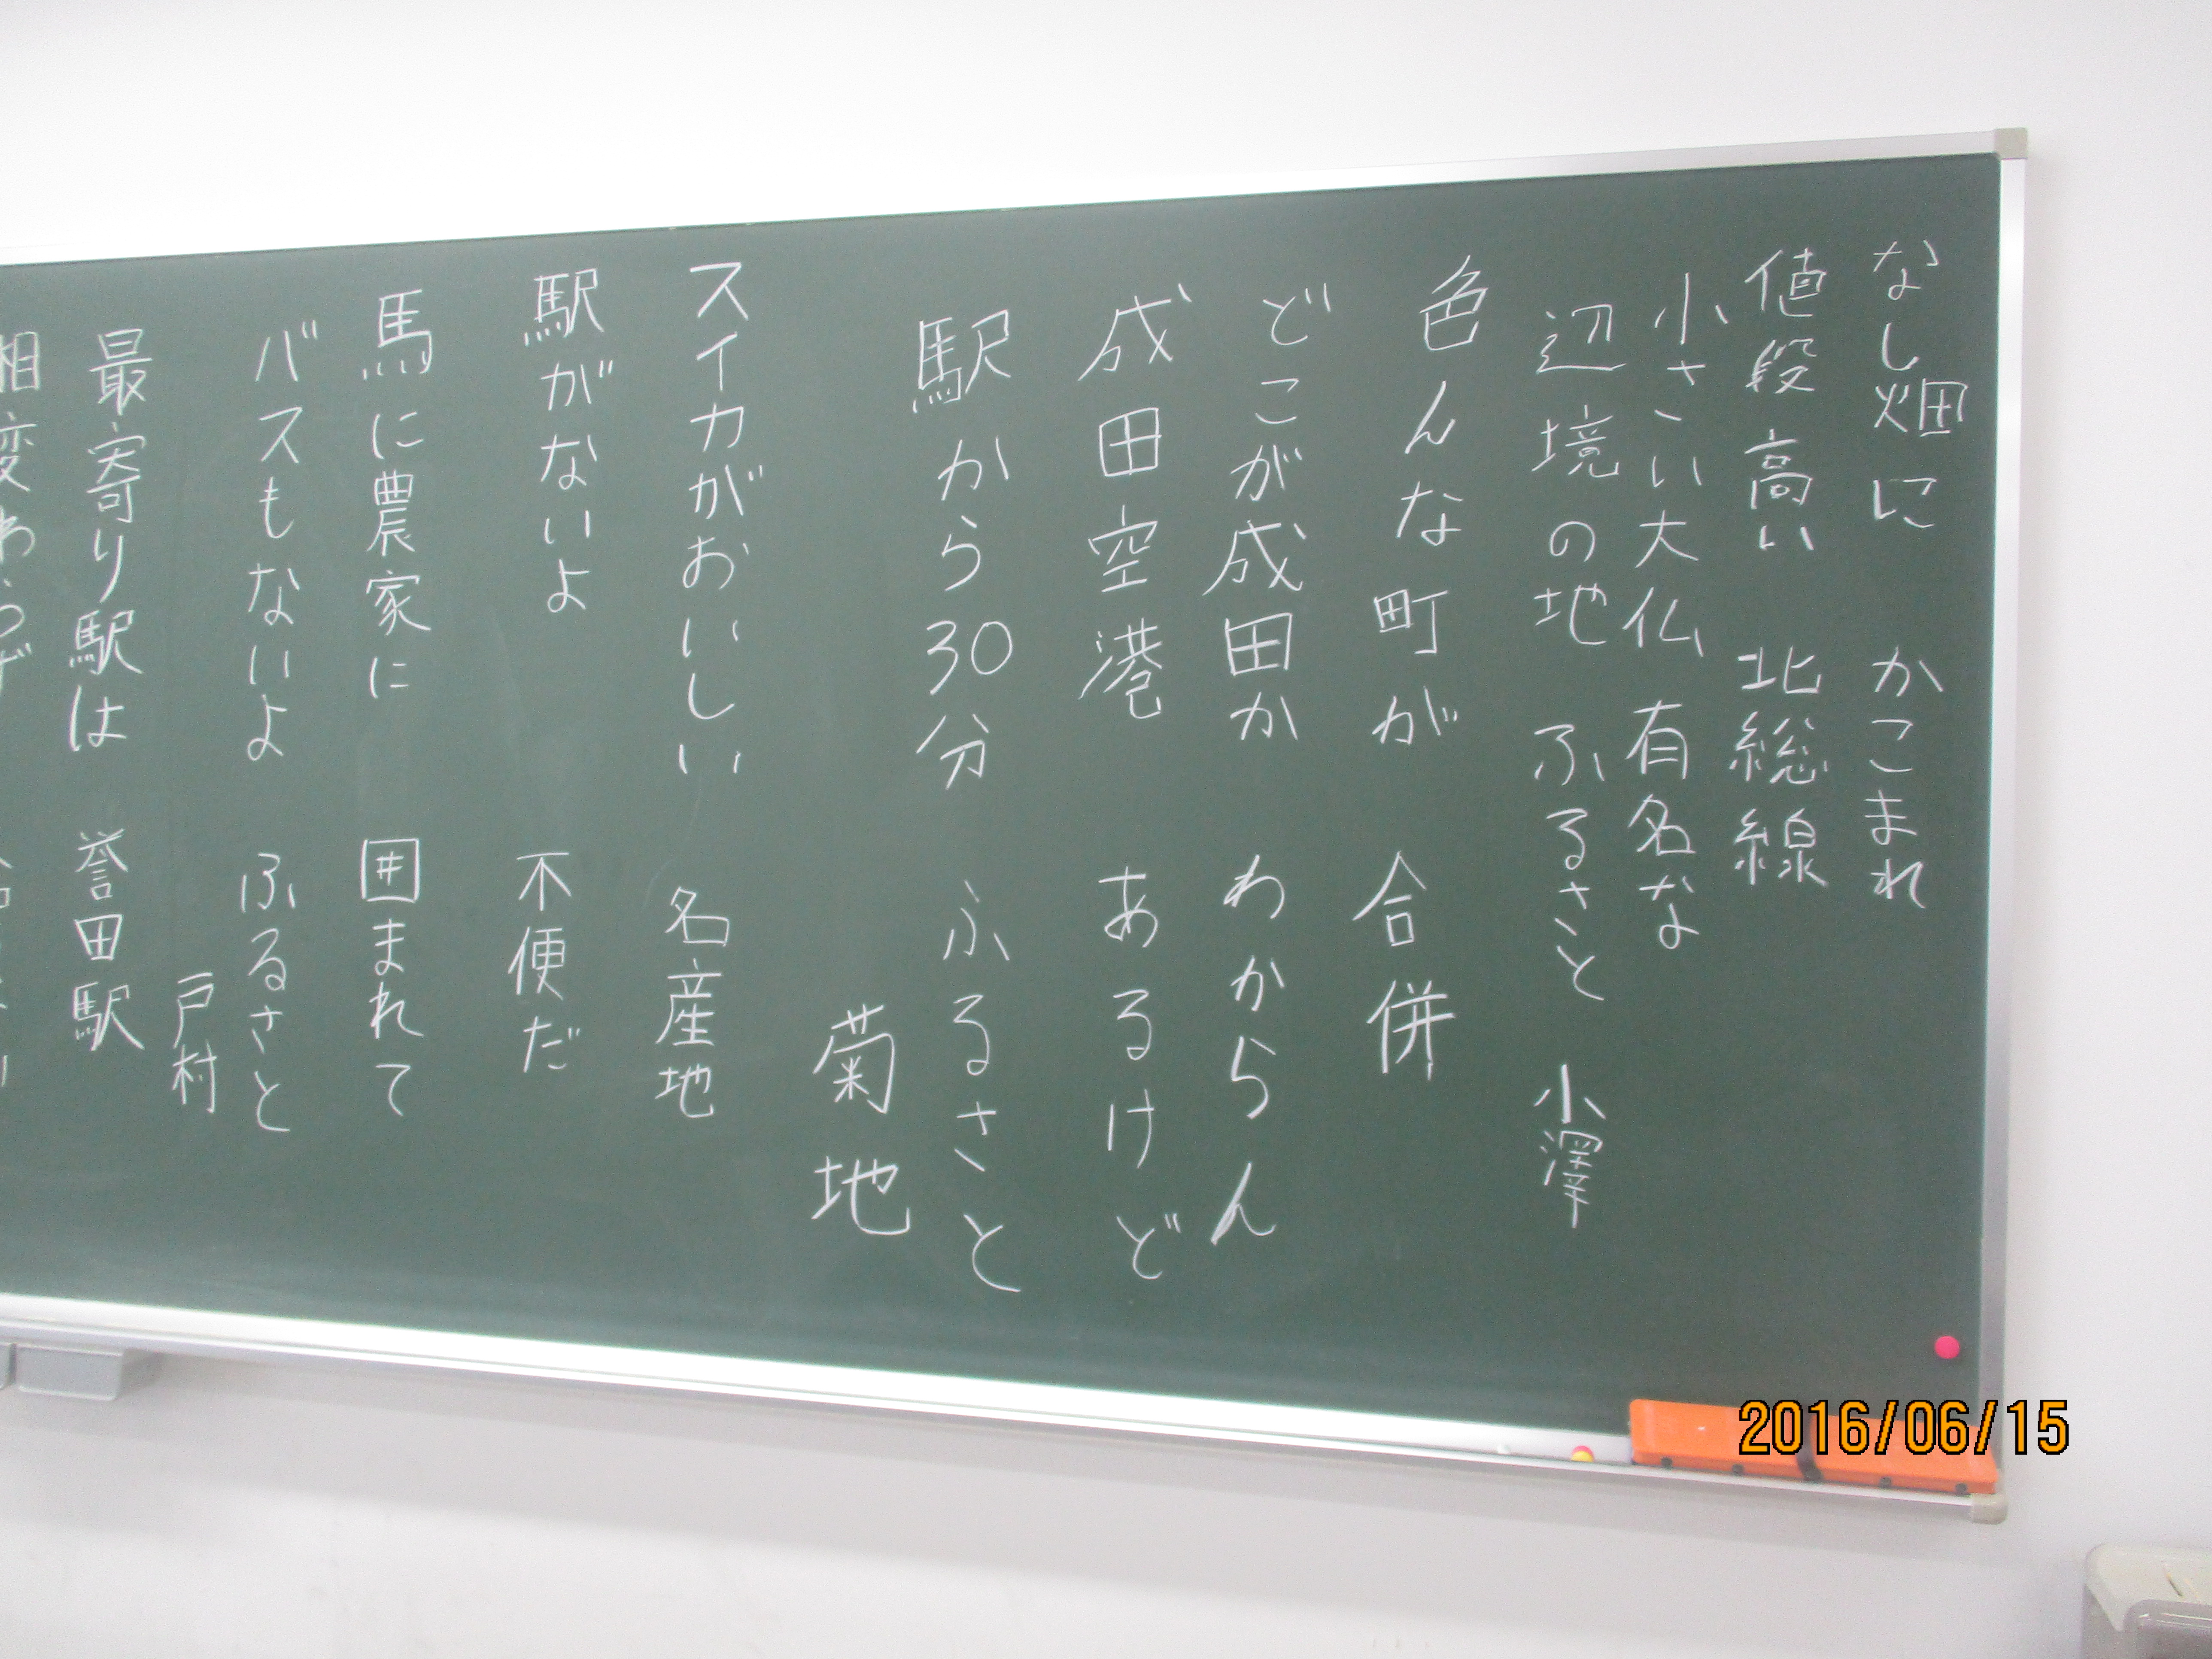 なし畑に　かこまれ
値段高い　北総線
小さい大仏　有名な
辺境の地　ふるさと　小澤
色んな町が　合併
どこが成田か　わからん
成田空港　あるけど
駅から30分　ふるさと
菊地
スイカがおいしい　名産地
駅がないよ　不便だ
馬に農家に　囲まれて
バスもないよ　ふるさと
戸村
最寄り駅は　誉田駅
相変わらず
2016/06/15